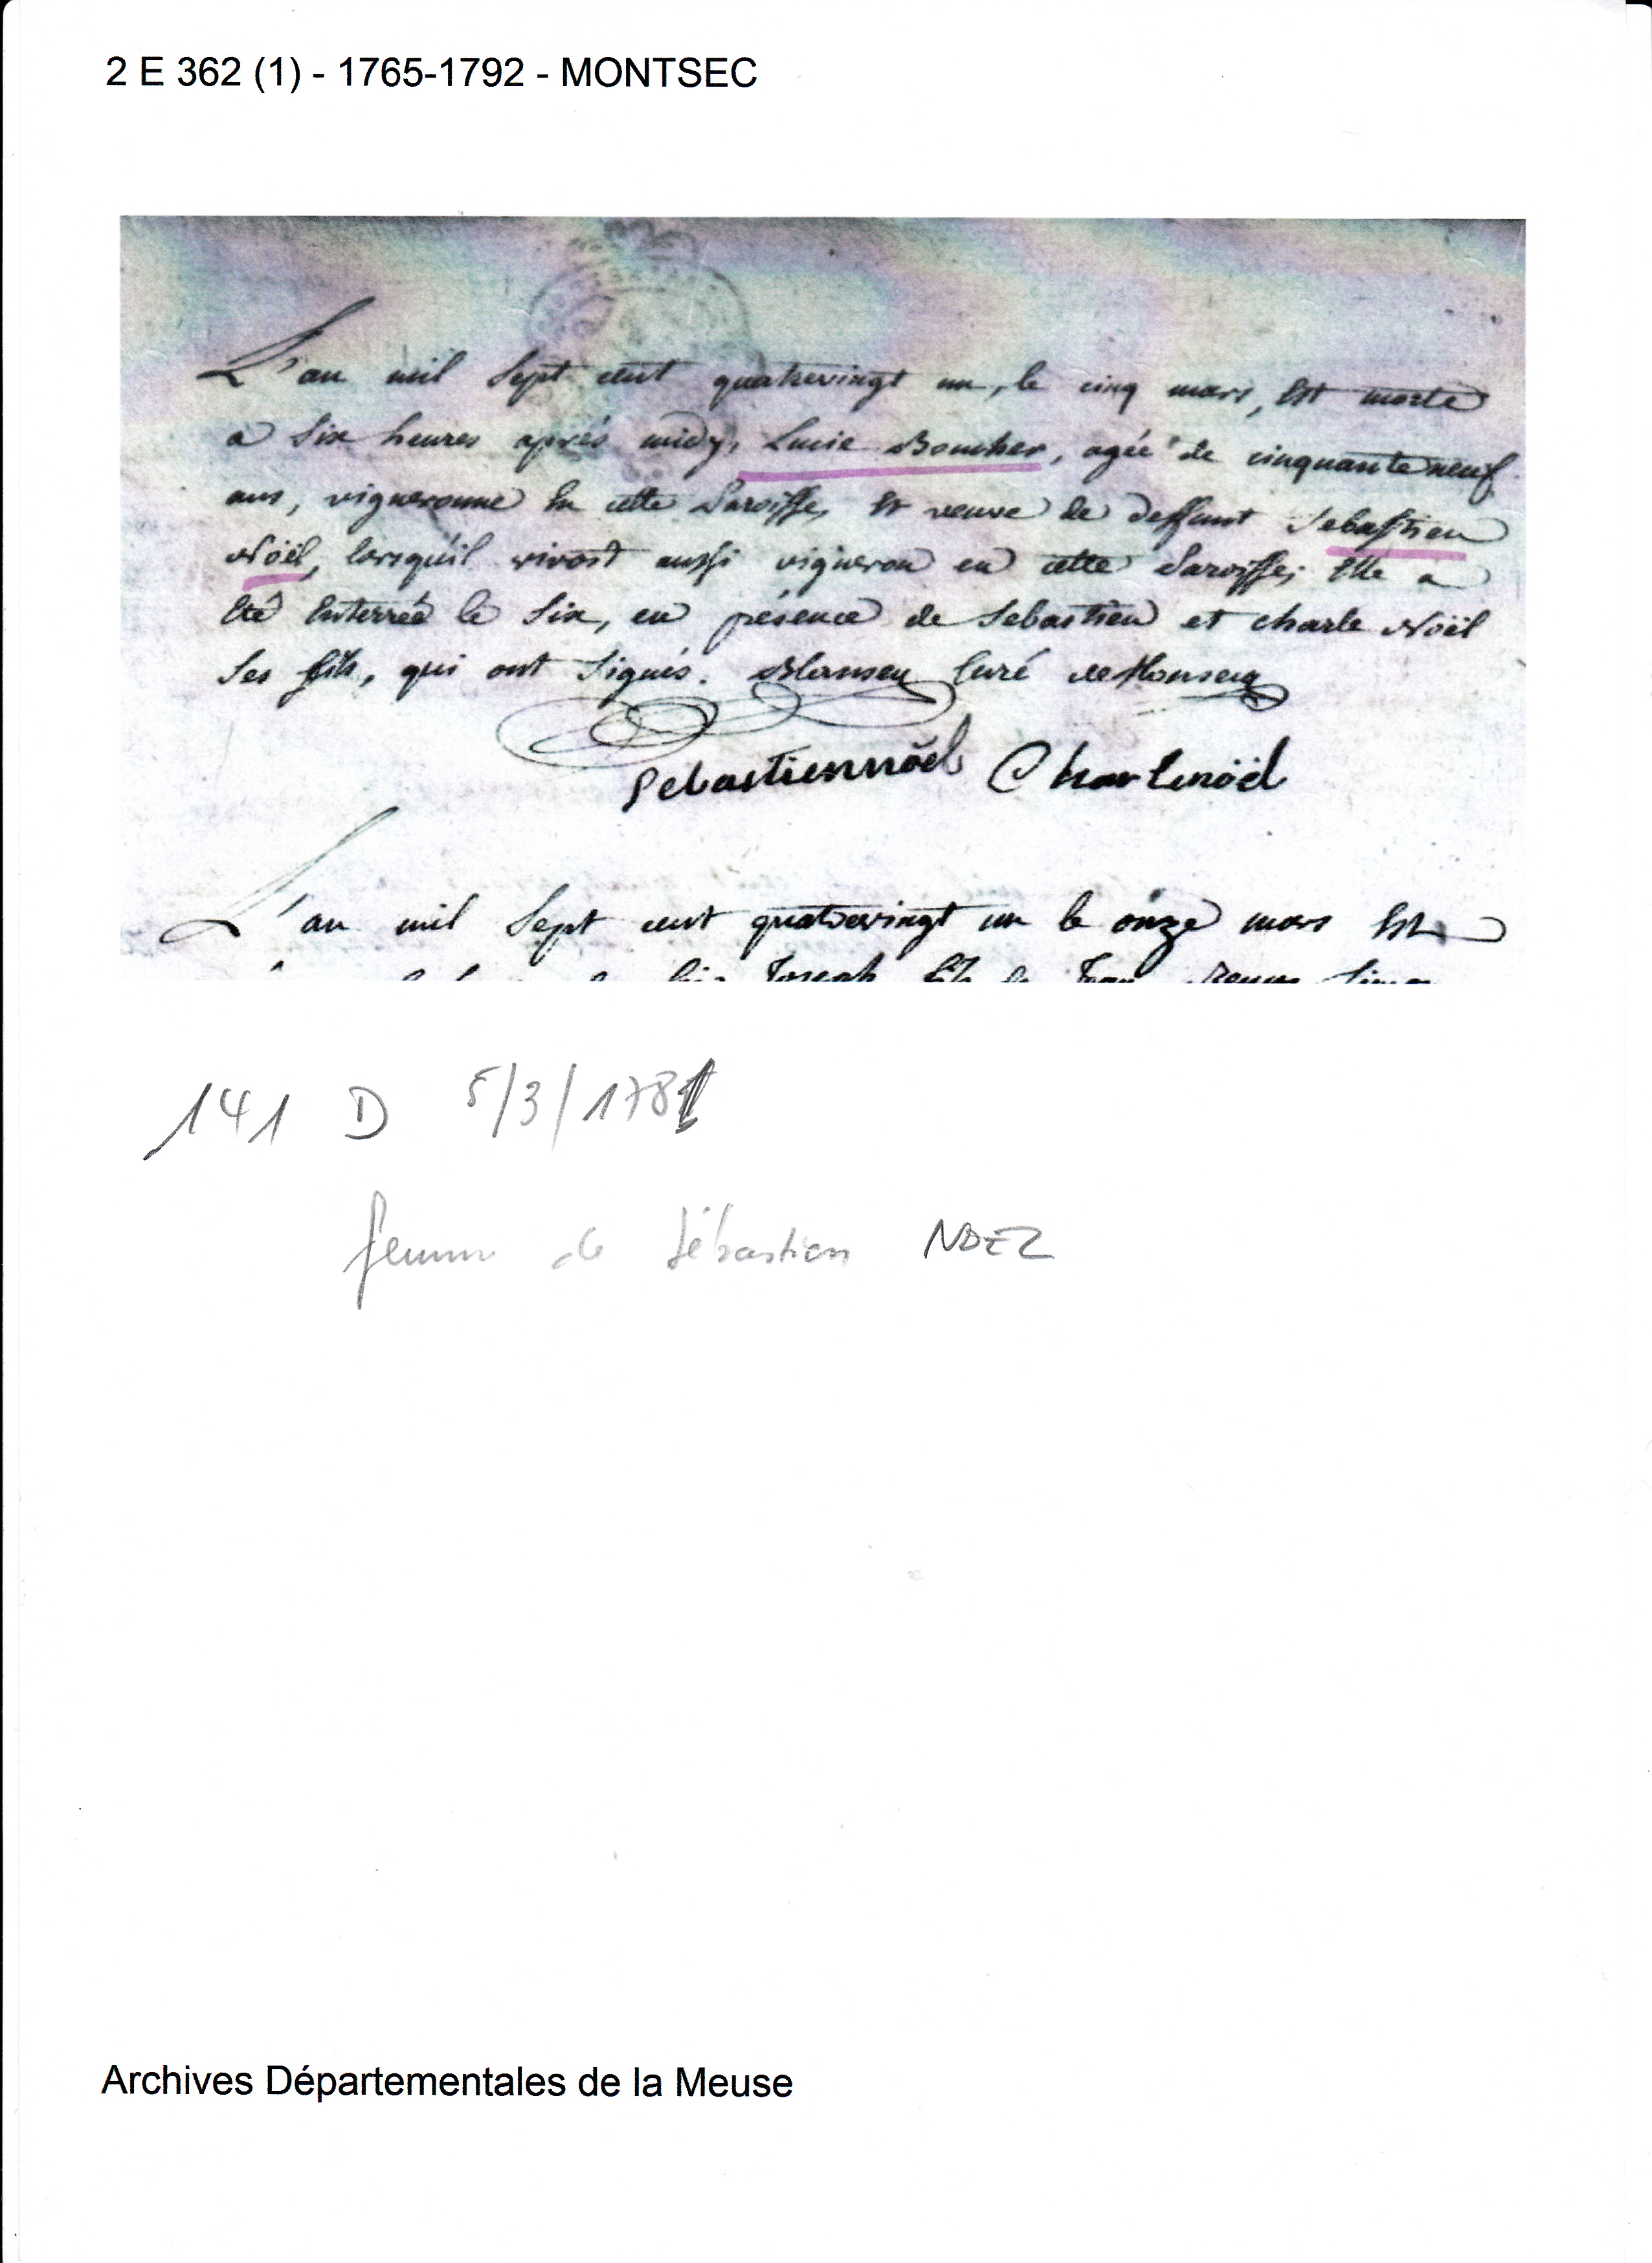 2 E 362 (1) - 1765-1792 - MONTSEC
L'an mil Sept cent quatrevingt un, le cinq mars, Est morte
a Six heures après midy, Lucie Boucher, agée de cinquante neuf
ans, vigneronne En cette Paroisse, Et veuve de deffunt Sebastien
Noël, lorsqu'il vivoit aussi vigneron en cette Paroisse; Elle a
Eté Enterrée le Six, en présence de Sebastien et charle Noël
Ses fils, qui ont Signés. Curé de Monsecq
Sebastiennöel Charlenöel
L'an mil Sept cent quatrevingt un le onze mars Est
Joseph fils de Jean
141 D 5/3/1781
femme de Sébastien NOEL
Archives Départementales de la Meuse